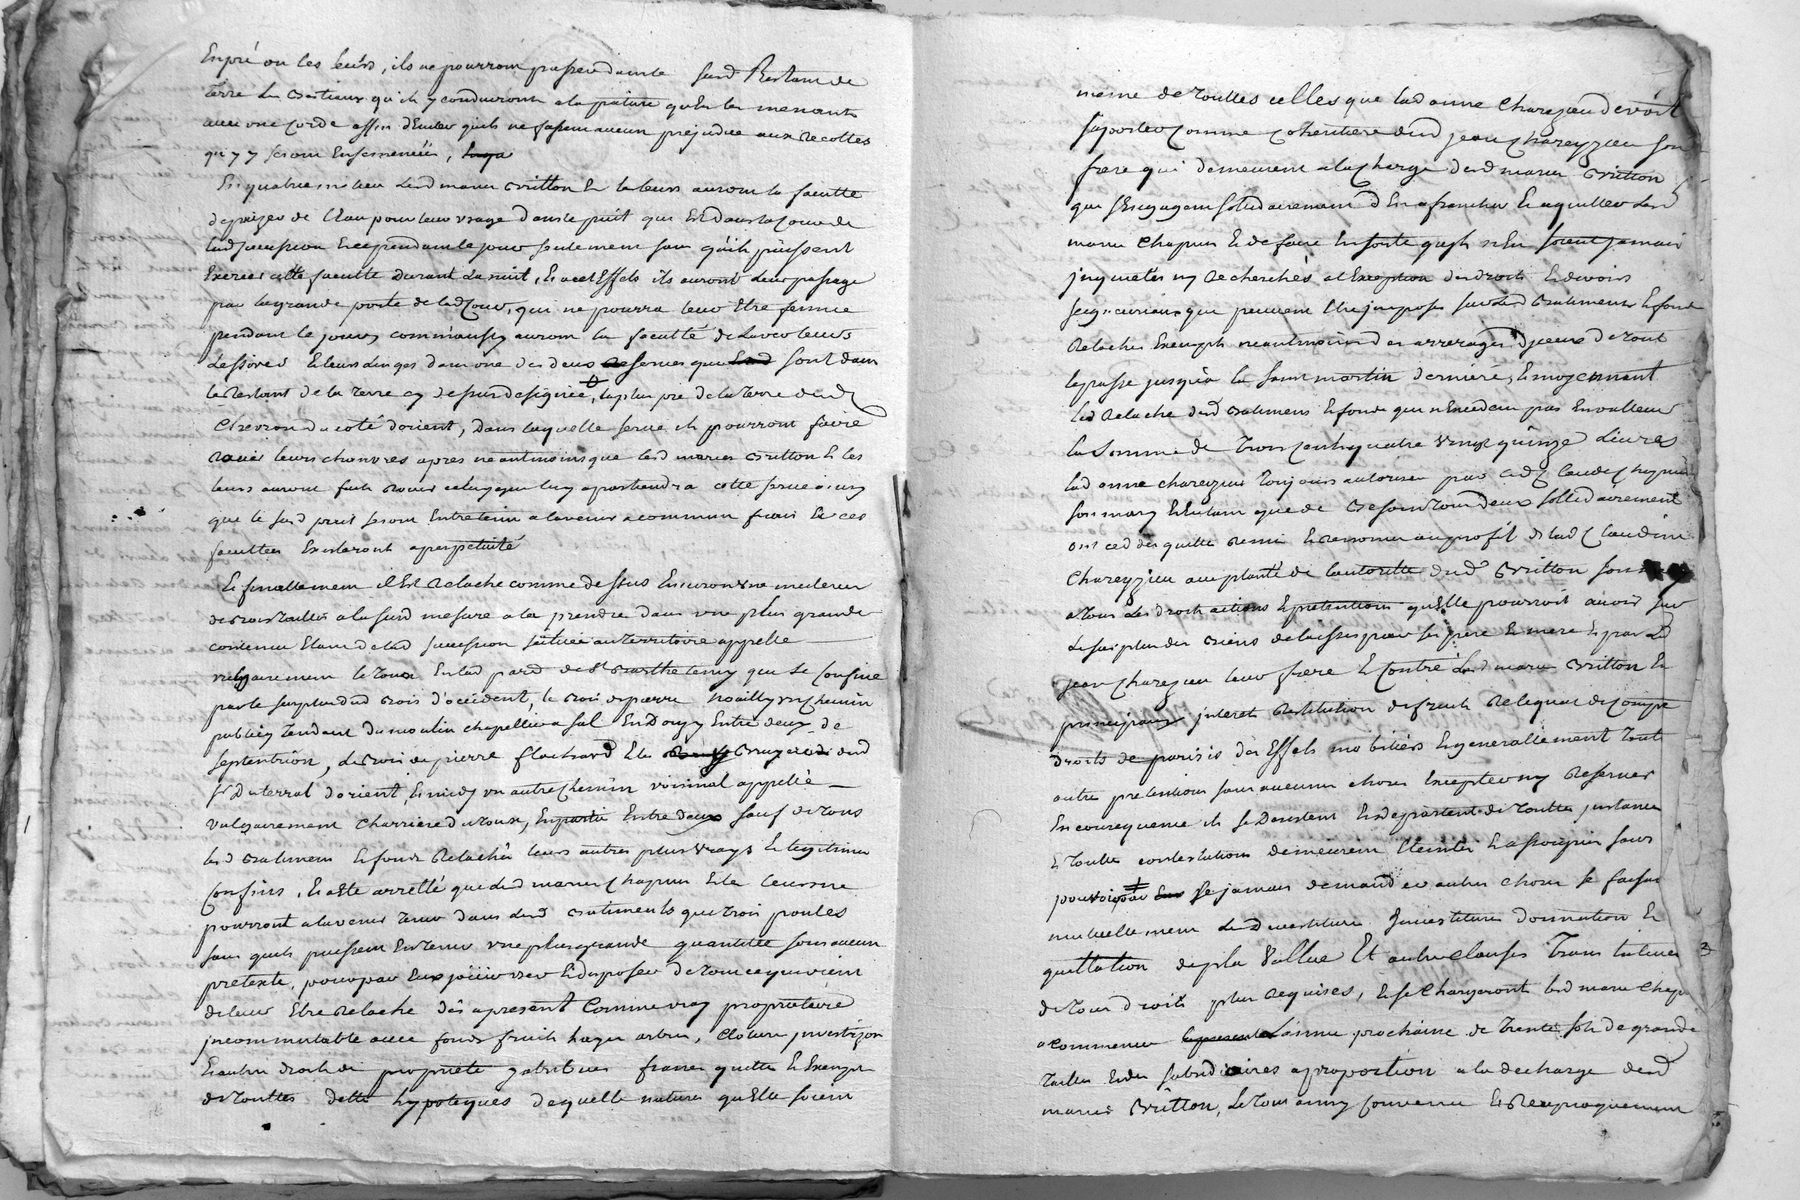 Enpré ou les leurs, ils ne pourront passer dans le surd Restant de
terre les Bestiaux qu'ils y conduiront a la pature qu'En les menants
avec une Corde affin d'Eviter quils ne fassent aucun prejudice aux Recoltes
qu y seront Ensemencées,
En quatrieme lieu lesd mariés Britton Et les leurs auront la faculté
de puizer de l'Eau pour leur usage dans le puit qui Est dans la Cour de
lad succession Et cependant le jour seulement sans qu'ils puissent
Exercer cette faculté Durant la nuit, Et a cet Effet ils auront leur passage
par la grande porte de lad Cour, qui ne pourra leur Etre fermée
pendant le jour, comm'aussy auront la faculté de Laver leurs
Lessives Et leurs Linges dans une des deux serves que sont dans
le Restant de la terre cy dessus designée, la plus pre de la terre dud
Chevron du coté d'orient, Dans laquelle serve ils pourront faire
Rouir leurs chanvres apres neantmoins que lesd mariés Britton Et les
leurs auront fait Rouir celuy qui luy apartiendra cette serve ainsy
que le surd puit seront Entretenu a l'avenir a commun frais Et ces
facultés Existeront a perpetuité
Et finallement il Est Relaché comme dessus Environ une mesure
de bois taillis a la surd mesure a la prendre dans une plus grande
contenue Etant de lad succession scituée au territoire appellé
vulgairement le toux En lad par de St Barthelemy que se Confine
par le surplus dud bois d'occident, le bois de pierre Noailly un Chemin
publicq tendant du moulin chapellier a Sal En Donzy Entre deux de
septentrion, le bois de pierre flachard Et les Bruyeres dud
sr Duterral d'orient, Et midy un autre Chemin voisinal appellé
vulgairement Charriere du toux, En partie Entre deux sauf de tous
lesd Batimens Et fonds Relachés leurs autres plus vrays Et legitimes
Confins, Et a Eté arretté que lesd mariés Chapuis Et les leurs ne
pourront a l'avenir tenir dans lesd Batiments que trois poules
sans quils puissent En tenir une plus grande quantitée sous aucun
pretexte, pour par Eux jouir user Et disposer de tout ce qui vient
de leur Etre Relaché dès a present Comme vray proprietaire
incommutable avec fonds fruits hayes arbres, Cloture
Et autres droits de proprieté y attribues francs quittes Et Exempts
de touttes dette hypoteques de quelle nature qu'Elle soient
même de touttes celles que lad anne Chareyzieu devoit
suporter Comme Coheritiere dud jean Chareyzieu son
frere qui demeurent a la Charge desd mariés Britton
qui s'Engagent solidairement d'En affranchir Et aquitter lesd
mariés Chapuis Et de faire En sorte qu'ils n'En soient jamais
inquietés ny Recherchés a l'Exception des droits Et devoirs
seigneuriaux qui peuvent Etre imposés sur lesd Batimens Et fonds
Relachés Exempts neantmoins des arrerages d'yceux de tout
le passé jusqu'a la saint martin derniere, Et moyennant
led Relaché desd Batimens Et fonds qui n'Excedent pas En valleur
la somme de trois cents quatre vingt quinze Livres
lad anne chareyzieu toujours autorisée par led Claude Chapuis
son mary Et En tant que de besoin tous deux solidairement
ont cedés quitté Remis Et Renoncé au profit de lad Claudine
Chareyzieu aceptante de l'autorité dud Britton son
a tous les droits actions Et pretentions qu'Elle pourroit avoir sur
le surplus des Biens delaissés par les pere Et mere Et par led
jean Chareyzieu leur frere Et Contre lesd mariés Britton En
principaux interets Restitution de fruits Reliquat de Compte
droits de parisis des Effets mobiliers Et generallement tout
autre pretentions sans aucune chose Excepter ny Reserver
En consequence ils se Desistent Et departent de touttes instances
Et touttes contestations demeurent Eteintes Et assoupies sans
pouvoir se jamais demander autres choses se faisant
mutuellement lesd Investiture donnation Et
quittation de plus Vallue Et autre clauses translatives
de tous droits plus Requises, Et se Chargeront lesd mariés Chapuis
a commencer L'année prochaine de trente sols de grande
tailles Et des subsidiaires a proportion a la decharge desd
mariés Britton, Le tout ainsy Convenu Et Reciproquement